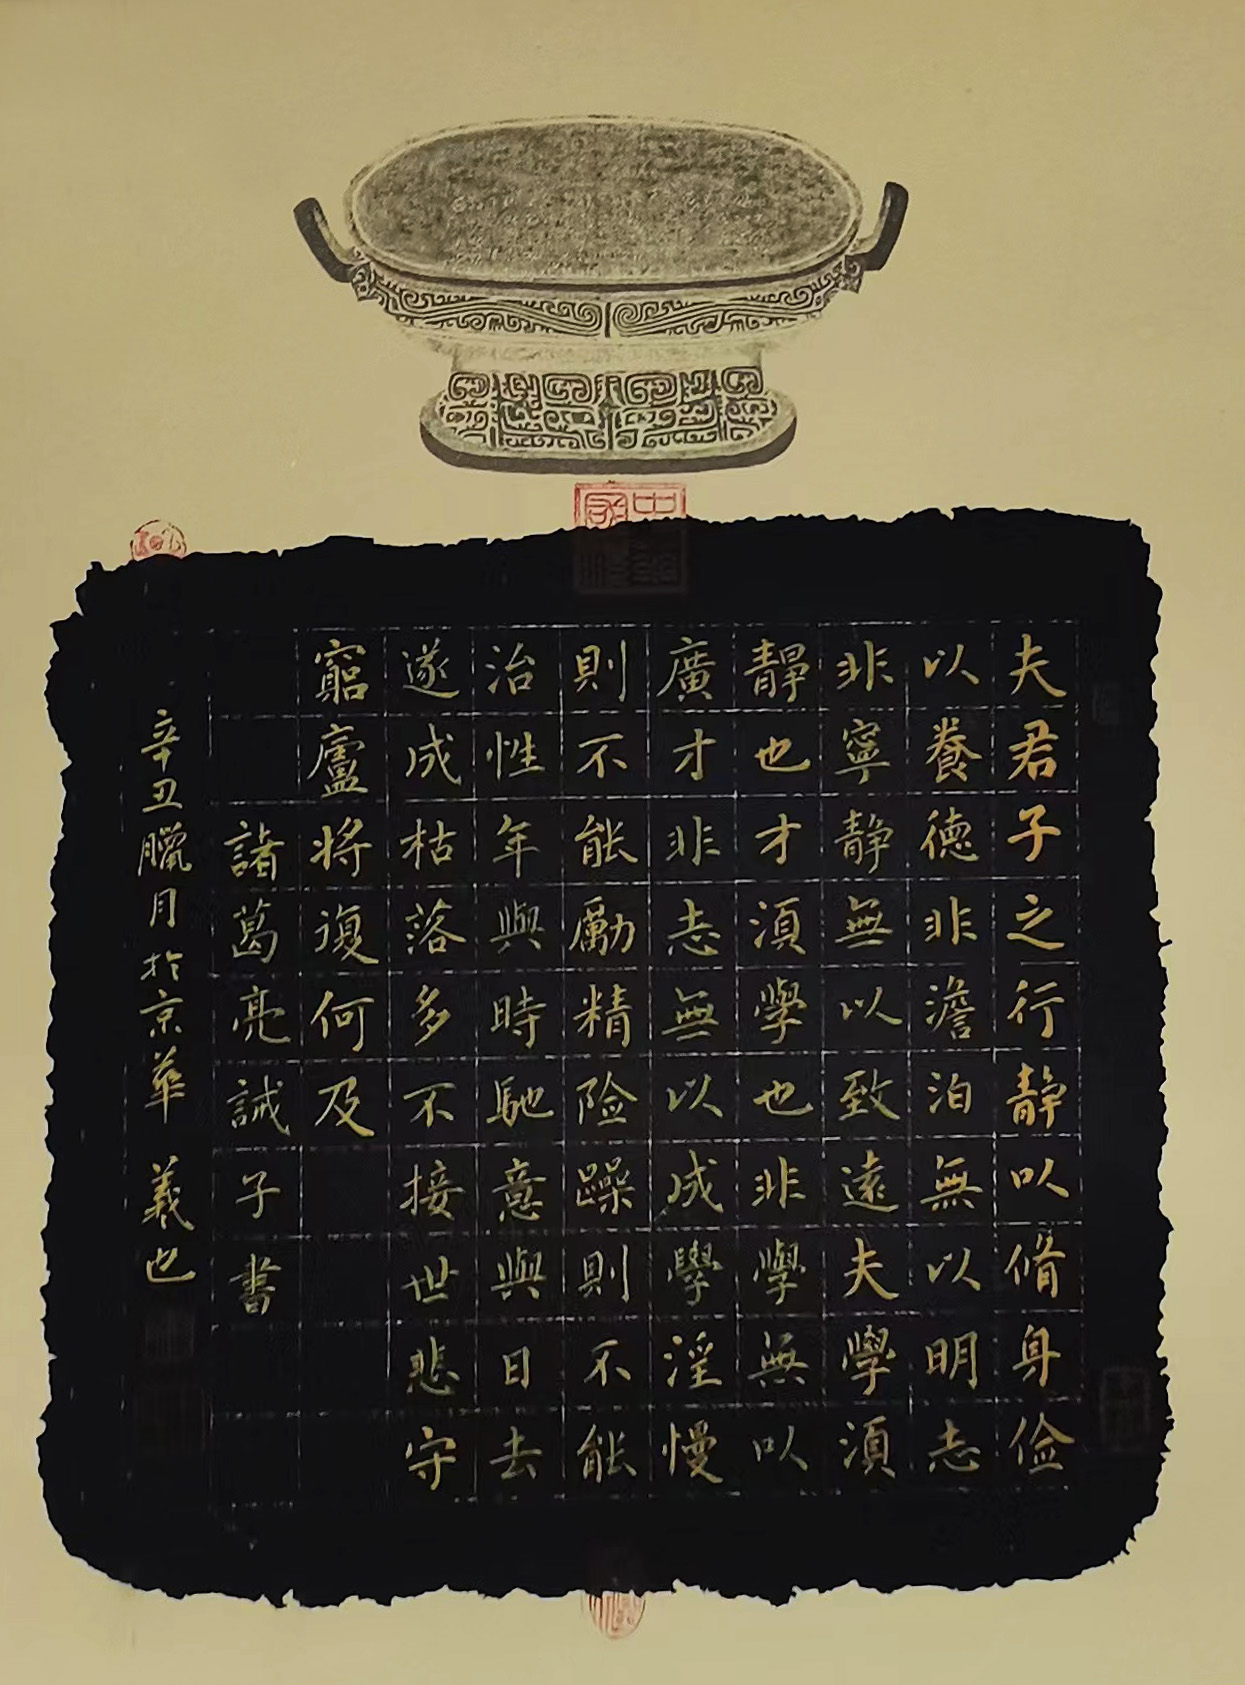 夫君子之行靜以脩身俭
以養德非澹泊無以明志
非寧静無以致遠夫學須
靜也才須學也非學無以
廣才非志無以成學淫慢
則不能勵精险躁則不能
治性年與時馳意與日去
遂成枯落多不接世悲守
窮廬将復何及
諸葛亮誡子書
辛丑臘月於京華 義也